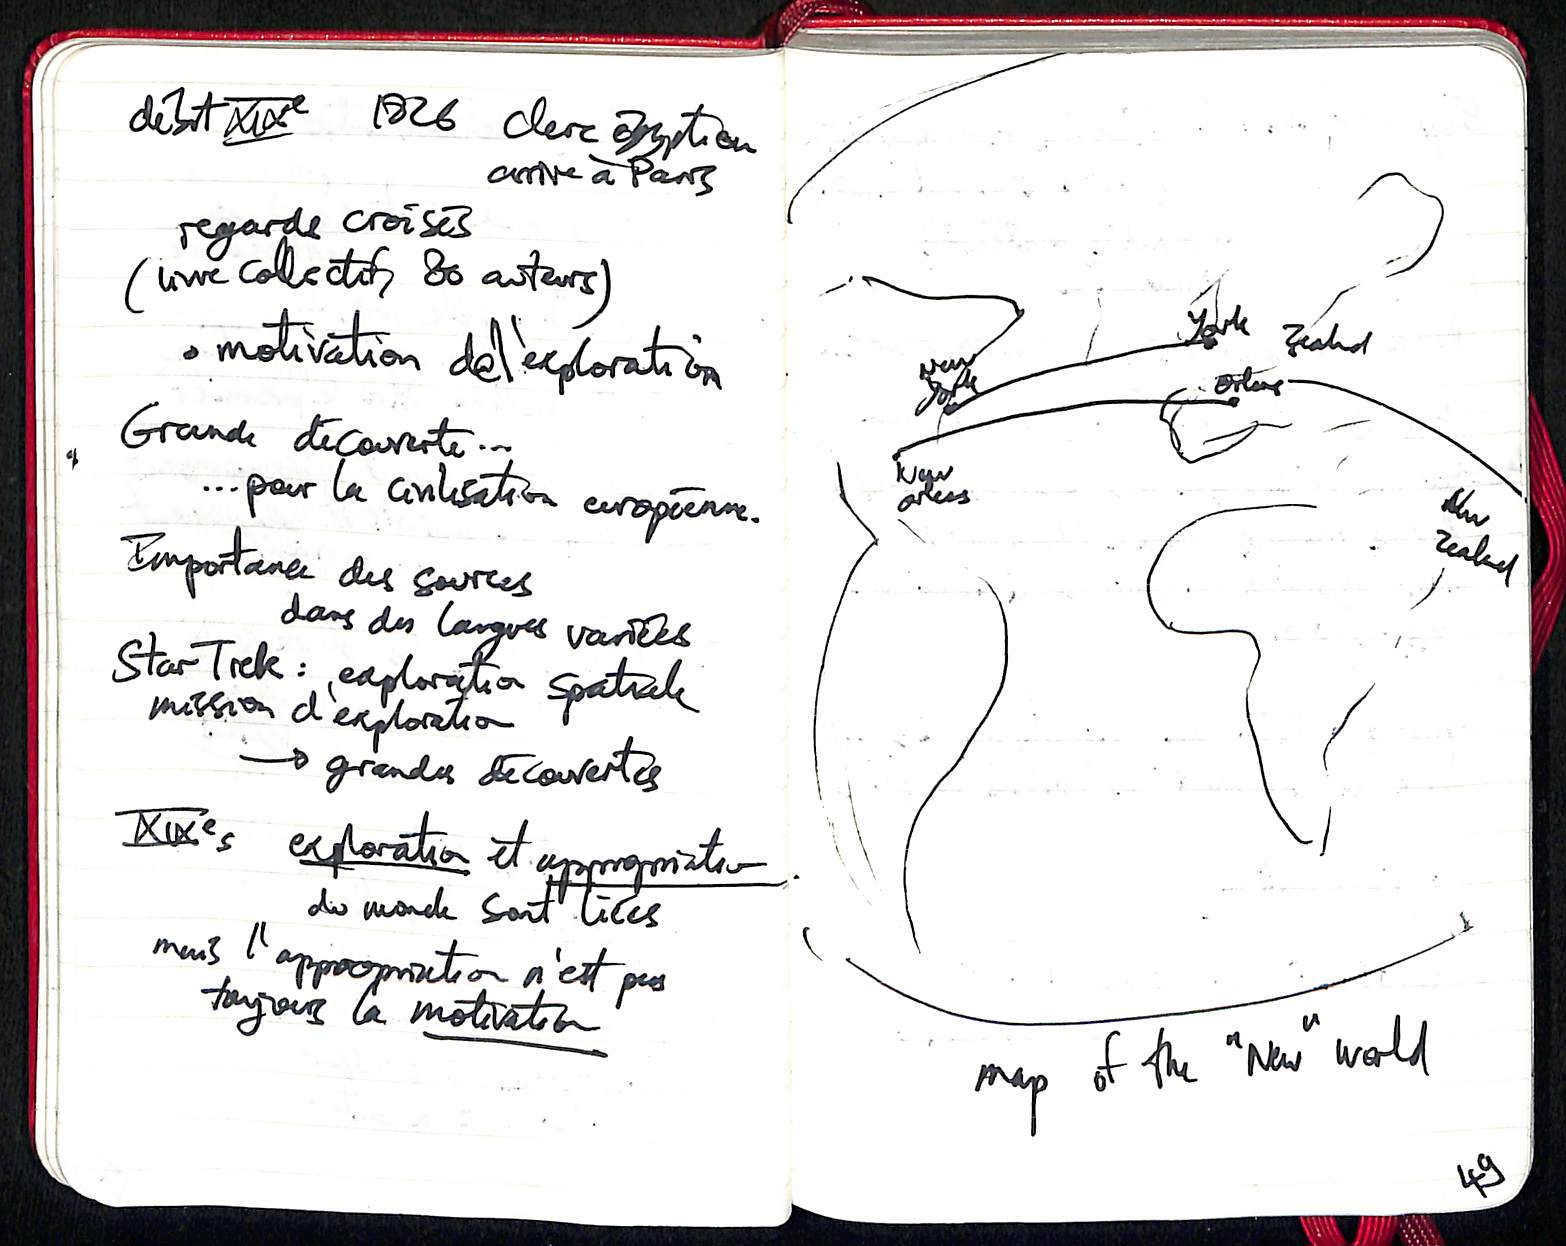 début XIXe 1826 clerc égyptien
arrive à Paris
regards croisés
(livre collectif, 80 auteurs)
• motivation de l'exploration
Grande découverte...
...pour la civilisation européenne.
Importance des sources
dans des langues variées
Star Trek : exploration spatiale
mission d'exploration
→ grandes découvertes
XIXe s exploration et appropriation
du monde sont liées
mais l'appropriation n'est pas
toujours la motivation
York
Zealand
New
York
Orléans
New
orleans
New
Zealand
map of the "New" world
49